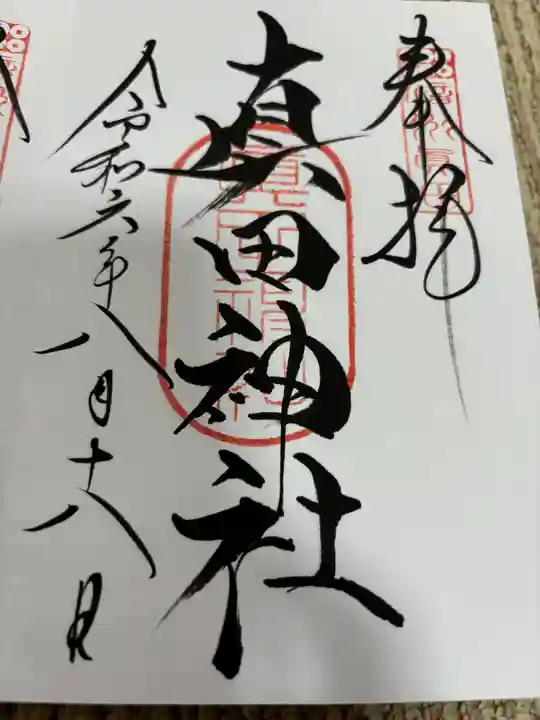 奉拝
眞田神社
令和六年八月十八日